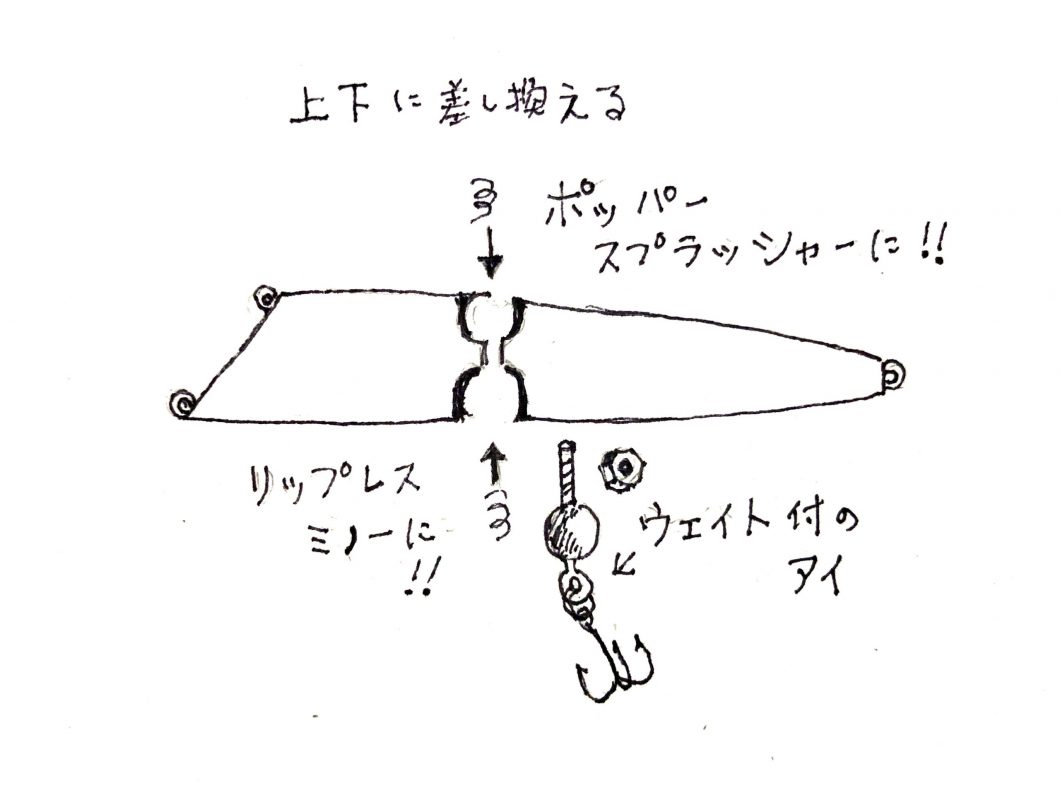 上下に差し換える
ポッパー
スプラッシャーに!!
リップレス
ミノーに
!!
ウェイト付の
アイ